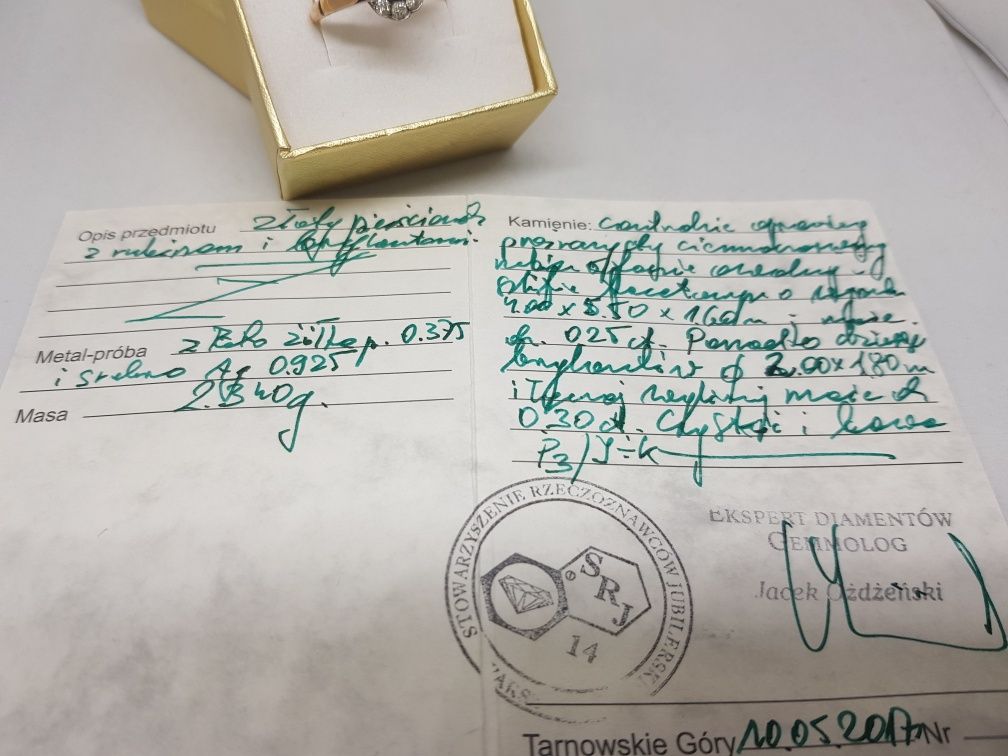 Opis przedmiotu złoty pierścionek
z rubinem i brylantami.
Metal-próba z Bło żółte p. 0.375
i srebro Ag 0.925
Masa 2.340g.
Kamienie: centralnie oprawiony
przezroczysty ciemnoczerwony
rubin o owalny
szlifie o
4.00 x 5.50 x 1.66m i masie
ok. 0.25 ct. Ponadto dziewięć
brylantów ϕ 2.00 x 1.80 m
i łącznej masie ok
0.30 ct. Czystość i barwa
P3/J÷K
STOWARZYSZENIE RZECZOZNAWCÓW JUBILERSKI
SRJ
14
EKSPERT DIAMENTÓW
GEMMOLOG
Jacek Ożdżeński
Tarnowskie Góry 10.05.2017 Nr